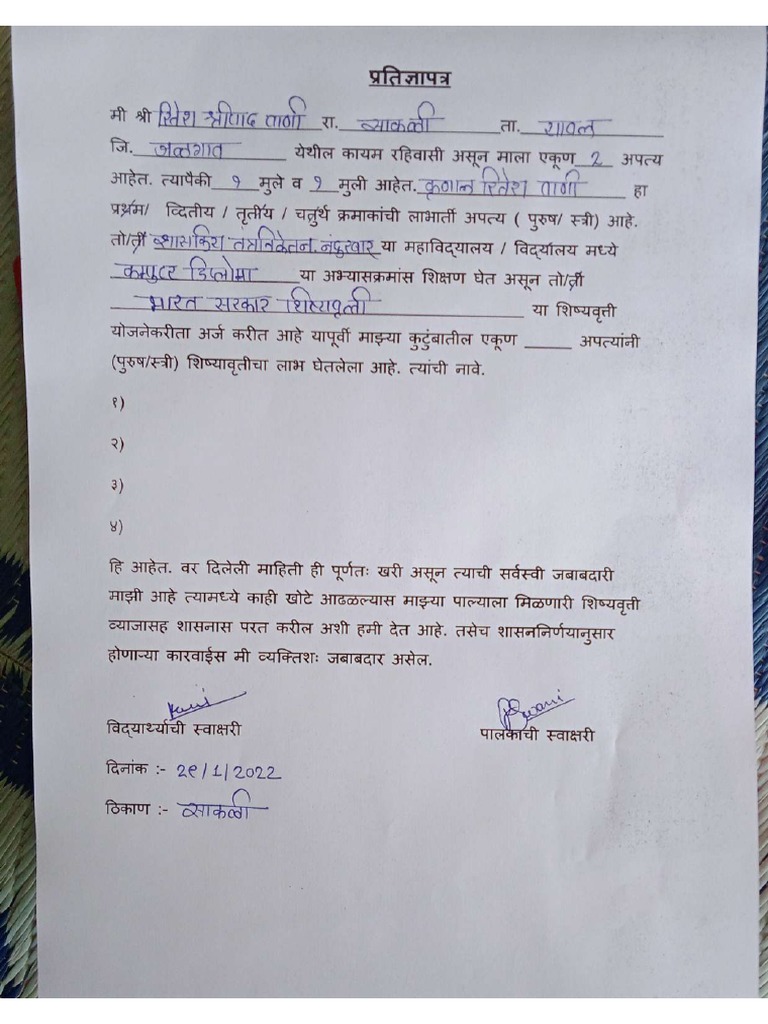 प्रतिज्ञापत्र
मी श्री रितेश श्रीपाद वाणी रा. साकळी ता. यावल
जि. जळगाव येथील कायम रहिवासी असून माला एकूण 2 अपत्य
आहेत. त्यापैकी १ मुले व १ मुली आहेत. कृणाल रितेश वाणी हा
प्रथ्रम/ व्दितीय / तृतीय / चतुर्थ क्रमाकांची लाभार्ती अपत्य ( पुरुष/ स्त्री) आहे.
तो/ती शासकिय तंत्रनिकेतन नंदुरबार या महाविद्यालय / विद्यालय मध्ये
कम्पुटर डिप्लोमा या अभ्यासक्रमांस शिक्षण घेत असून तो/ती
भारत सरकार शिष्यवृत्ती या शिष्यवृत्ती
योजनेकरीता अर्ज करीत आहे यापूर्वी माझ्या कुटुंबातील एकूण _____ अपत्यांनी
(पुरुष/स्त्री) शिष्यावृतीचा लाभ घेतलेला आहे. त्यांची नावे.
१)
२)
३)
४)
हि आहेत. वर दिलेली माहिती ही पूर्णतः खरी असून त्याची सर्वस्वी जबाबदारी
माझी आहे त्यामध्ये काही खोटे आढळल्यास माझ्या पाल्याला मिळणारी शिष्यवृत्ती
व्याजासह शासनास परत करील अशी हमी देत आहे. तसेच शासननिर्णयानुसार
होणाऱ्या कारवाईस मी व्यक्तिशः जबाबदार असेल.
विद्यार्थ्याची स्वाक्षरी पालकाची स्वाक्षरी
दिनांक :- 29/1/2022
ठिकाण :- साकळी